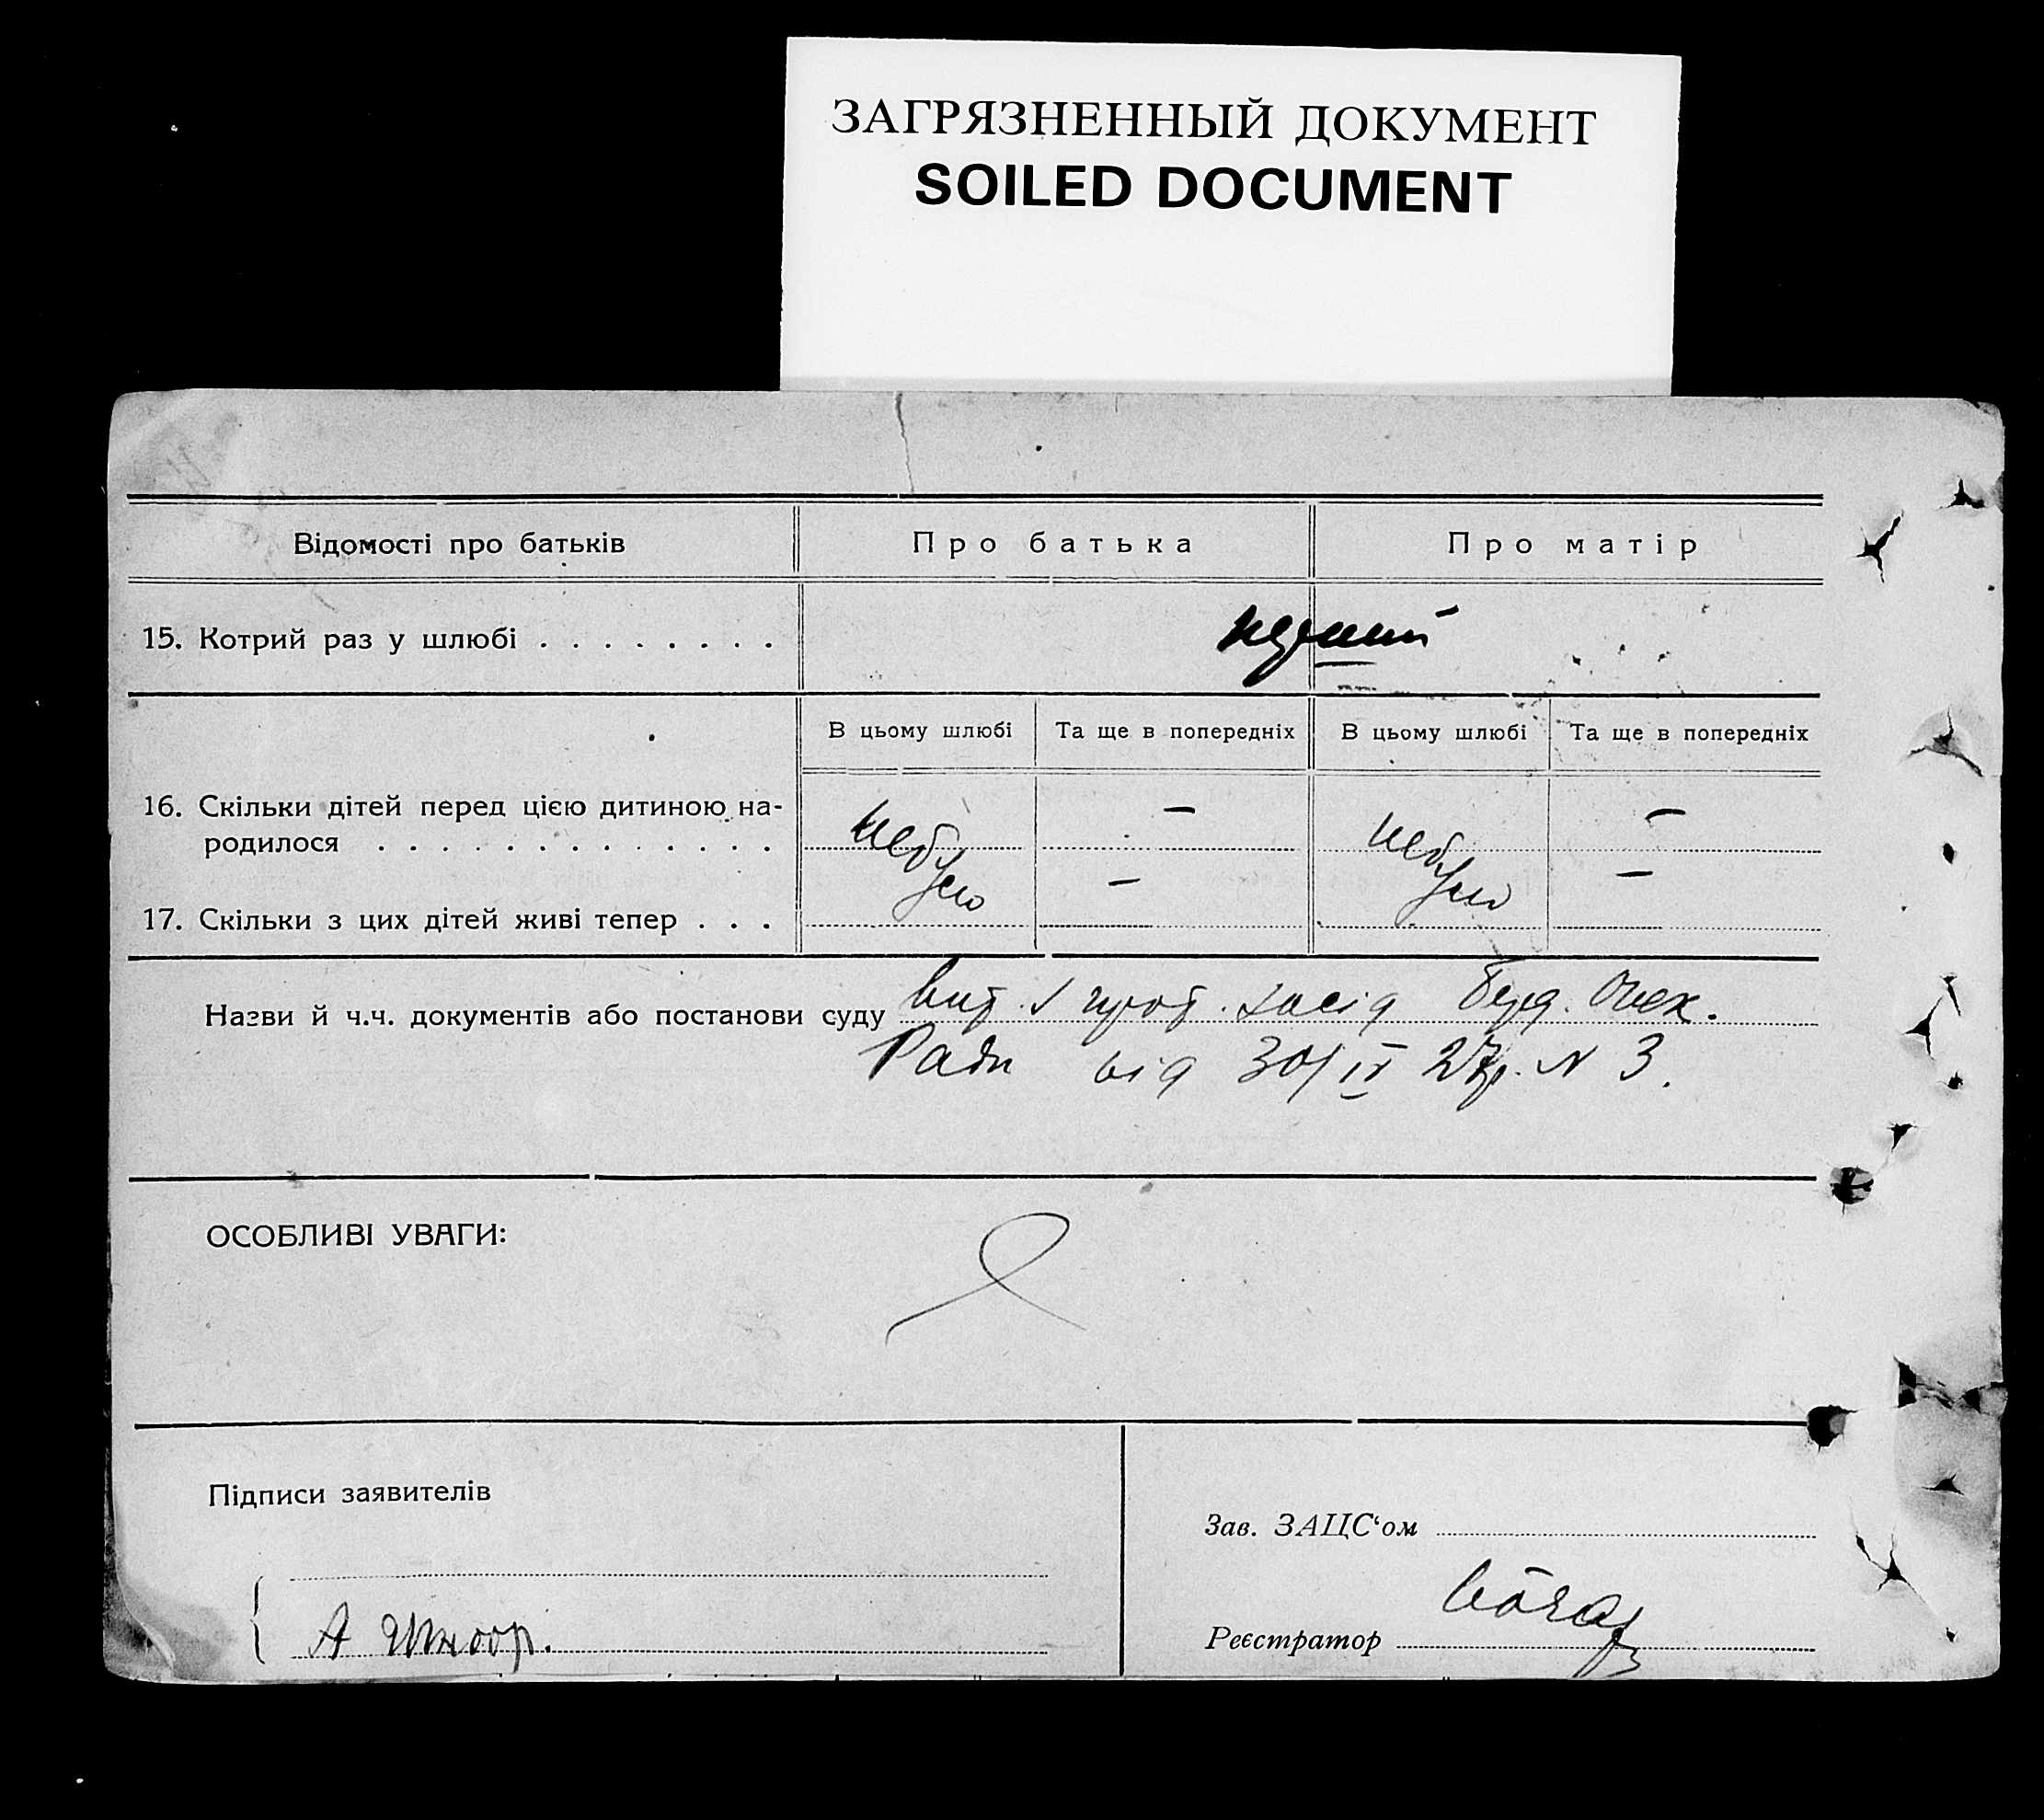 ЗАГРЯЗНЕННЫЙ ДОКУМЕНТ
SOILED DOCUMENT
Відомості про батьків Про батька Про матір
15. Котрий раз у шлюбі . . . . . . . .
В цьому шлюбі Та ще в попередніх В цьому шлюбі Та ще в попередніх
16. Скільки дітей перед цією дитиною на-
родилося . . . . . . . . . . . . . — —
небуло небуло
17. Скільки з цих дітей живі тепер . . . — —
Назви й ч.ч. документів або постанови суду Вит. з прот. засід Опек.
Ради від 30/IV 27р. N 3.
ОСОБЛИВІ УВАГИ:
Підписи заявителів
Зав. ЗАЦС‘ом
А
Реєстратор